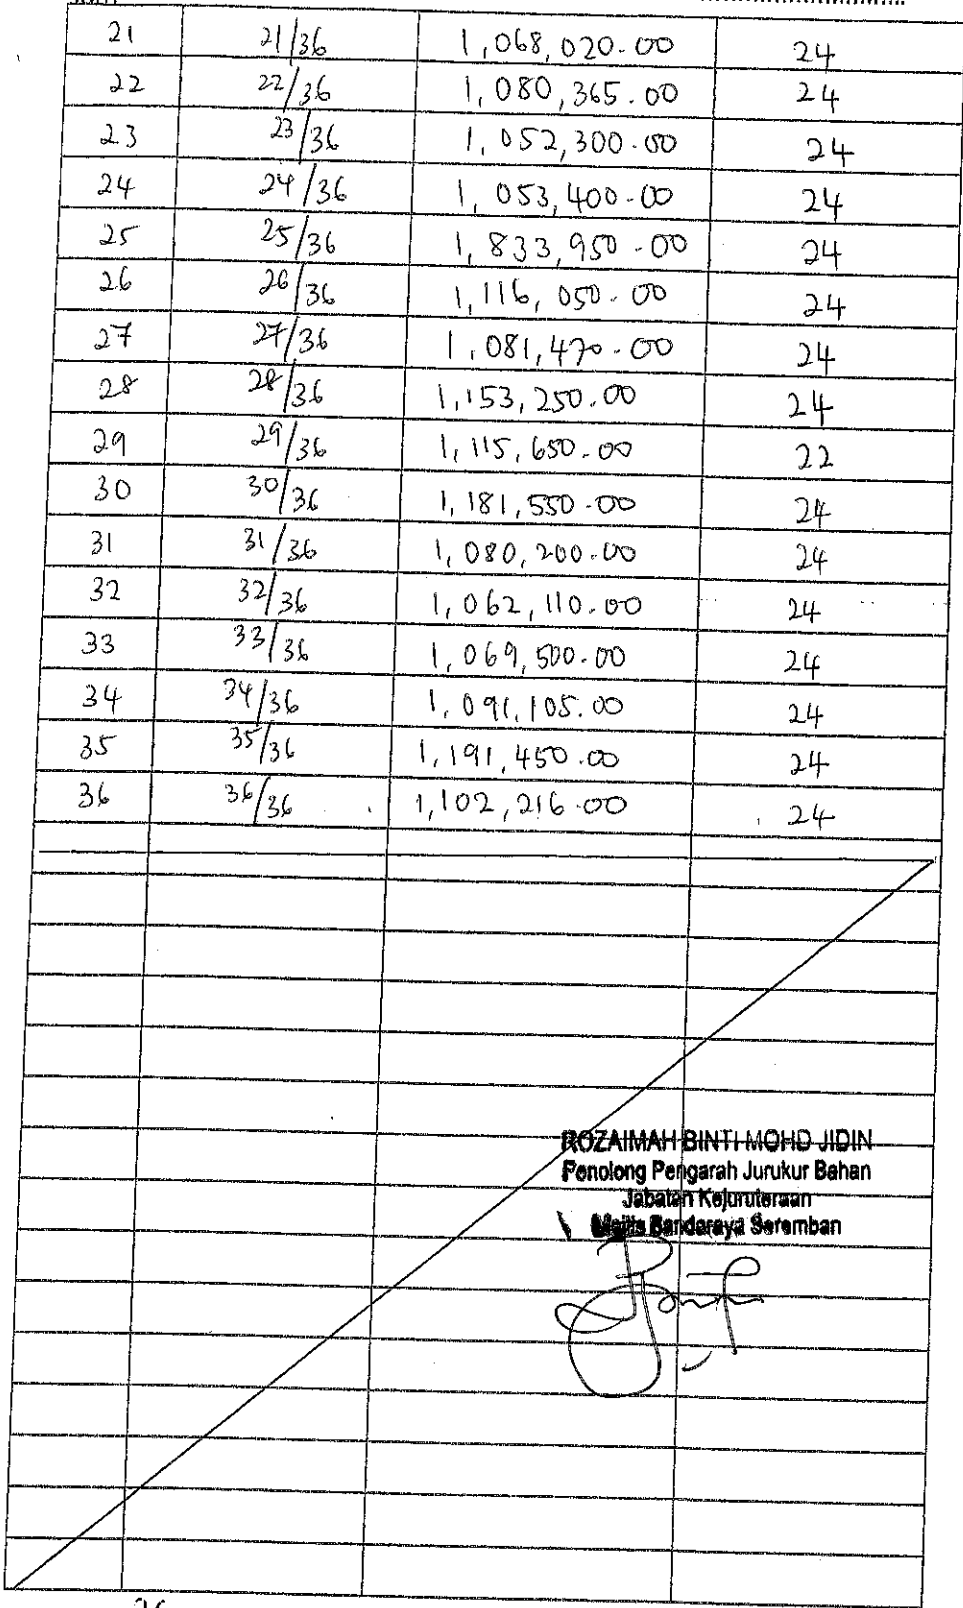 21 21/36 1,068,020.00 24
22 22/36 1,080,365.00 24
23 23/36 1,052,300.00 24
24 24/36 1,053,400.00 24
25 25/36 1,833,950.00 24
26 26/36 1,116,050.00 24
27 27/36 1,081,470.00 24
28 28/36 1,153,250.00 24
29 29/36 1,115,650.00 22
30 30/36 1,181,550.00 24
31 31/36 1,080,200.00 24
32 32/36 1,062,110.00 24
33 33/36 1,069,500.00 24
34 34/36 1,091,105.00 24
35 35/36 1,191,450.00 24
36 36/36 1,102,216.00 24
ROZAIMAH BINTI MOHD JIDIN
Penolong Pengarah Jurukur Bahan
Jabatan Kejuruteraan
Majlis Bandaraya Seremban